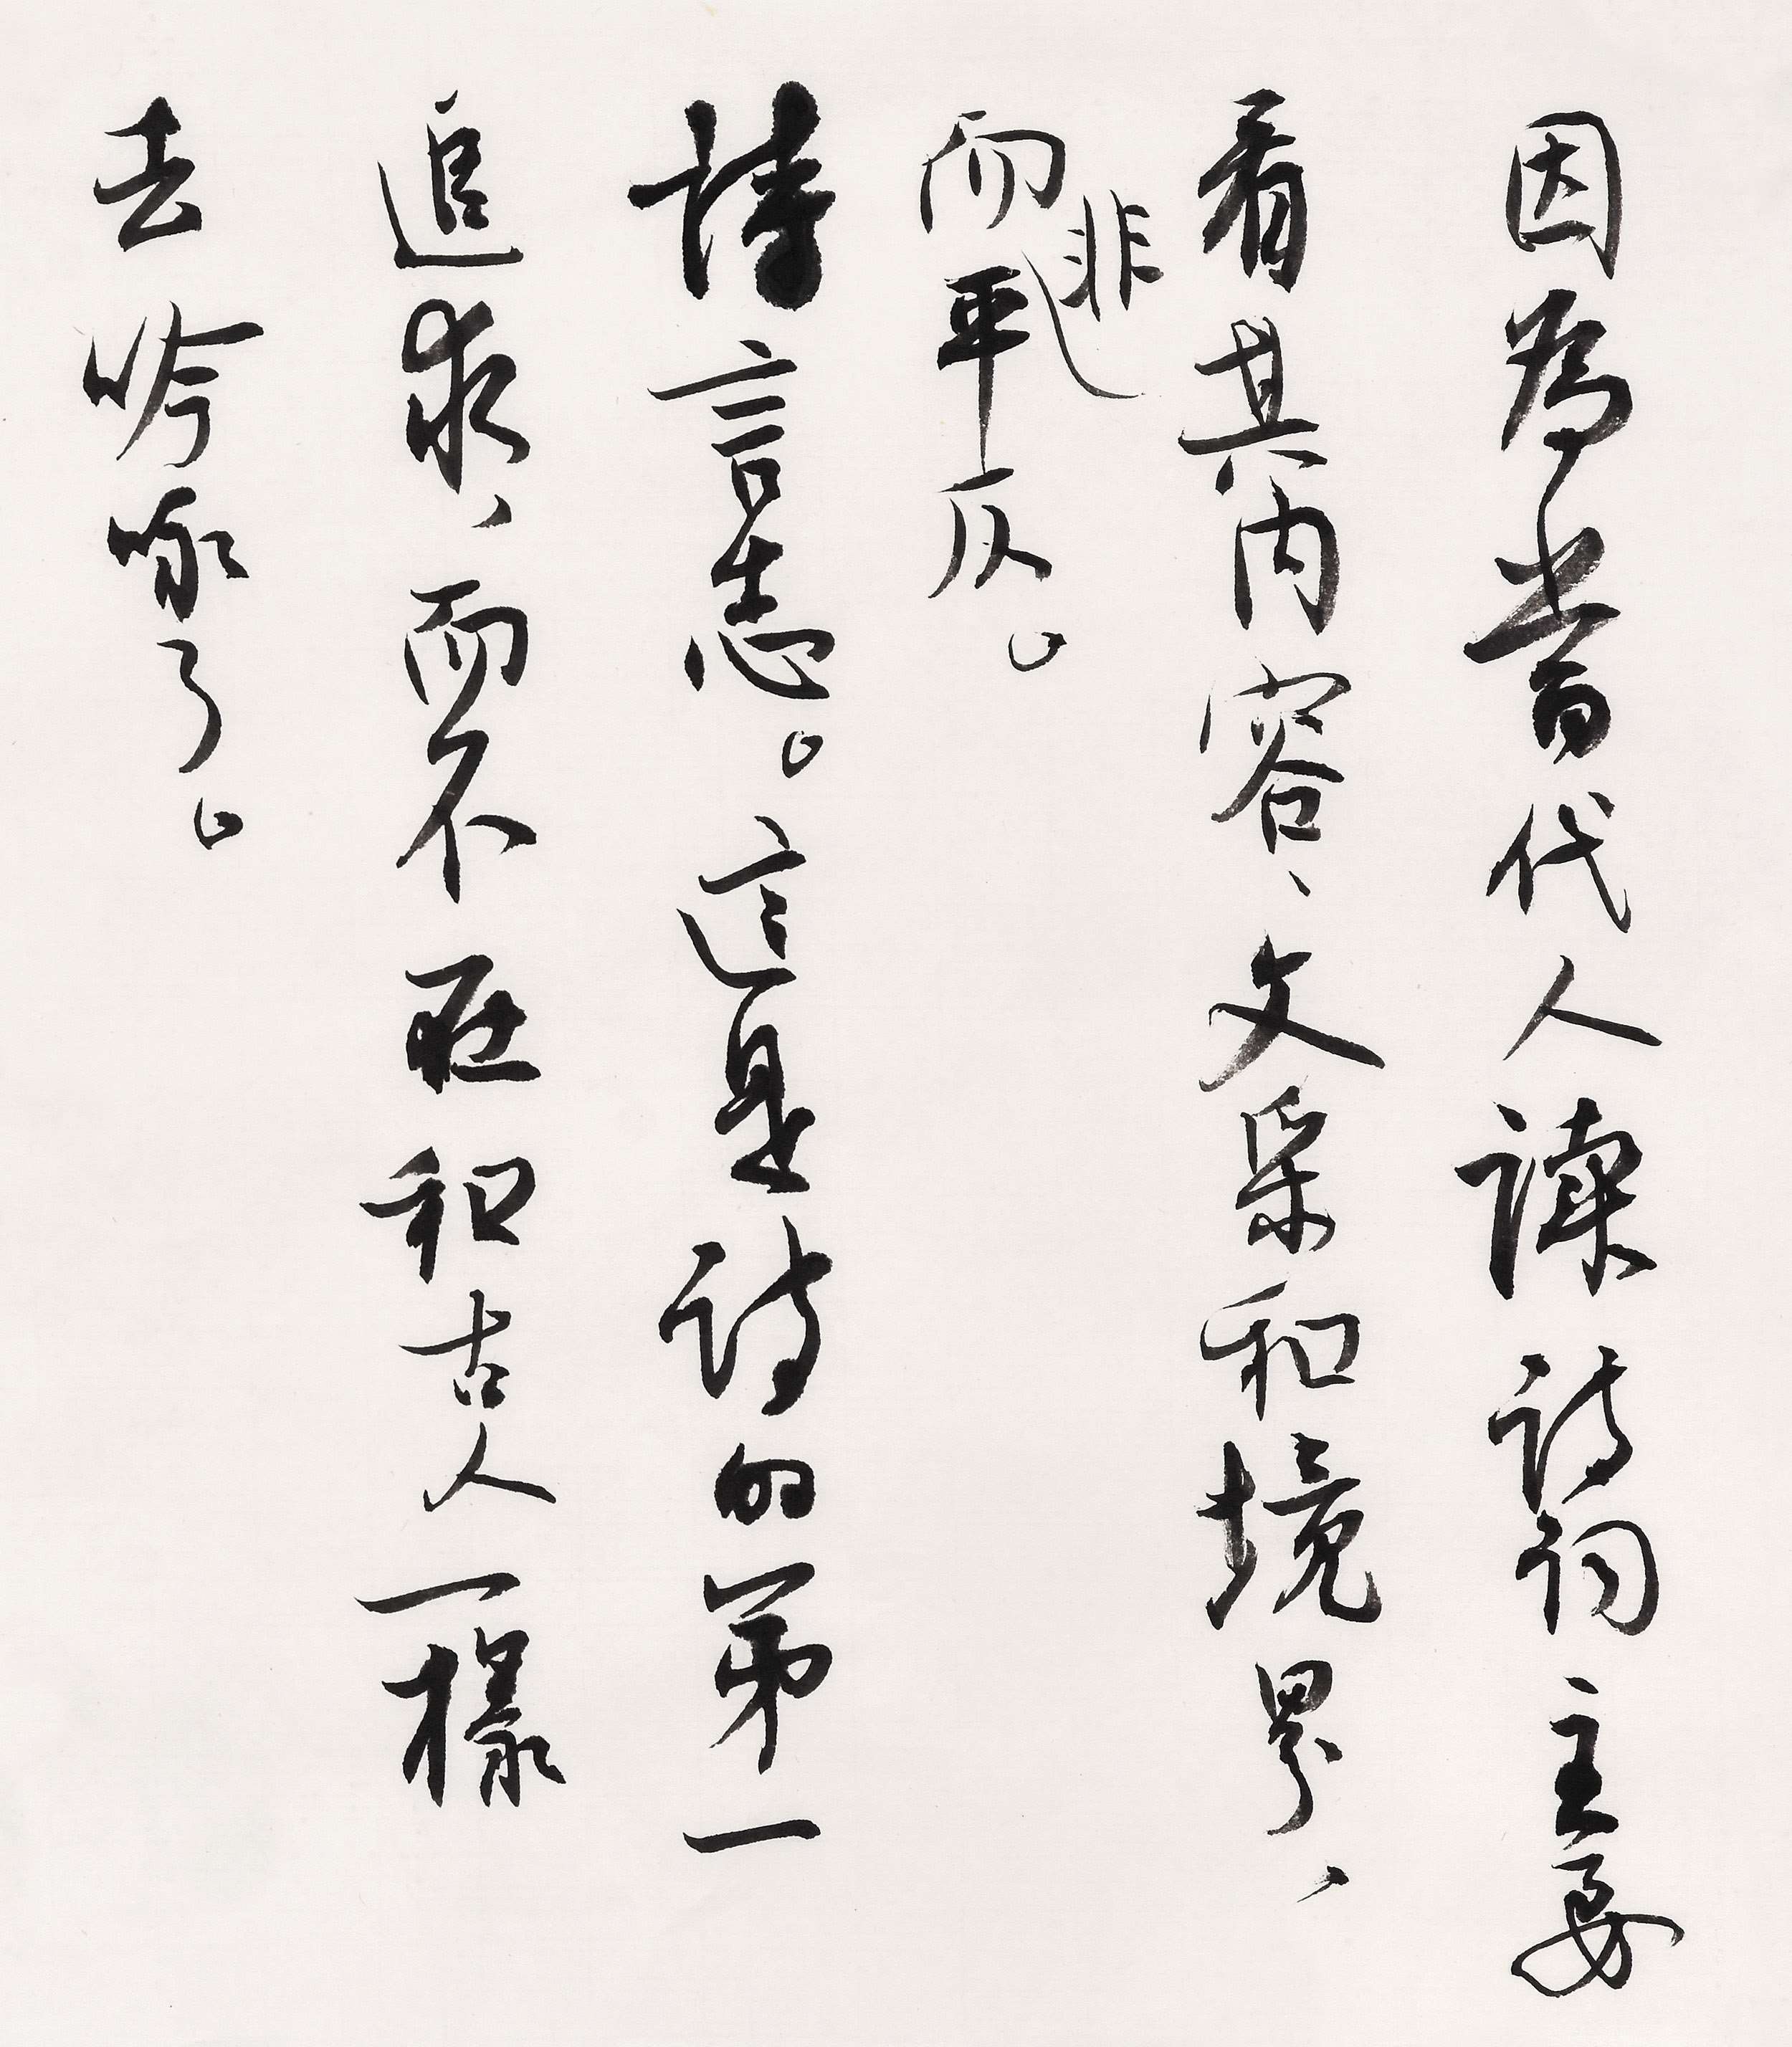 因為當代人讀詩詞主要
看其内容、文采和境界，
而非平仄。
詩言志。這是詩的第一
追求，而不在和古人一樣
去吟咏了。